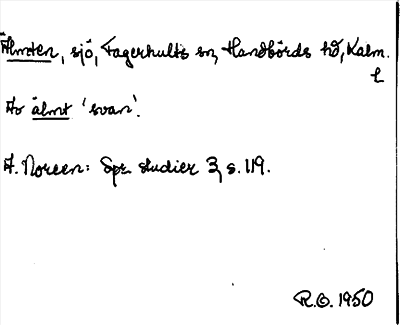 Älmten, sjö, Fagerhults sn, Handbörds hd, Kalm.
l.
Av älmt 'svan'.
A. Noreen: Spr. studier 3, s. 119.
R.O. 1950